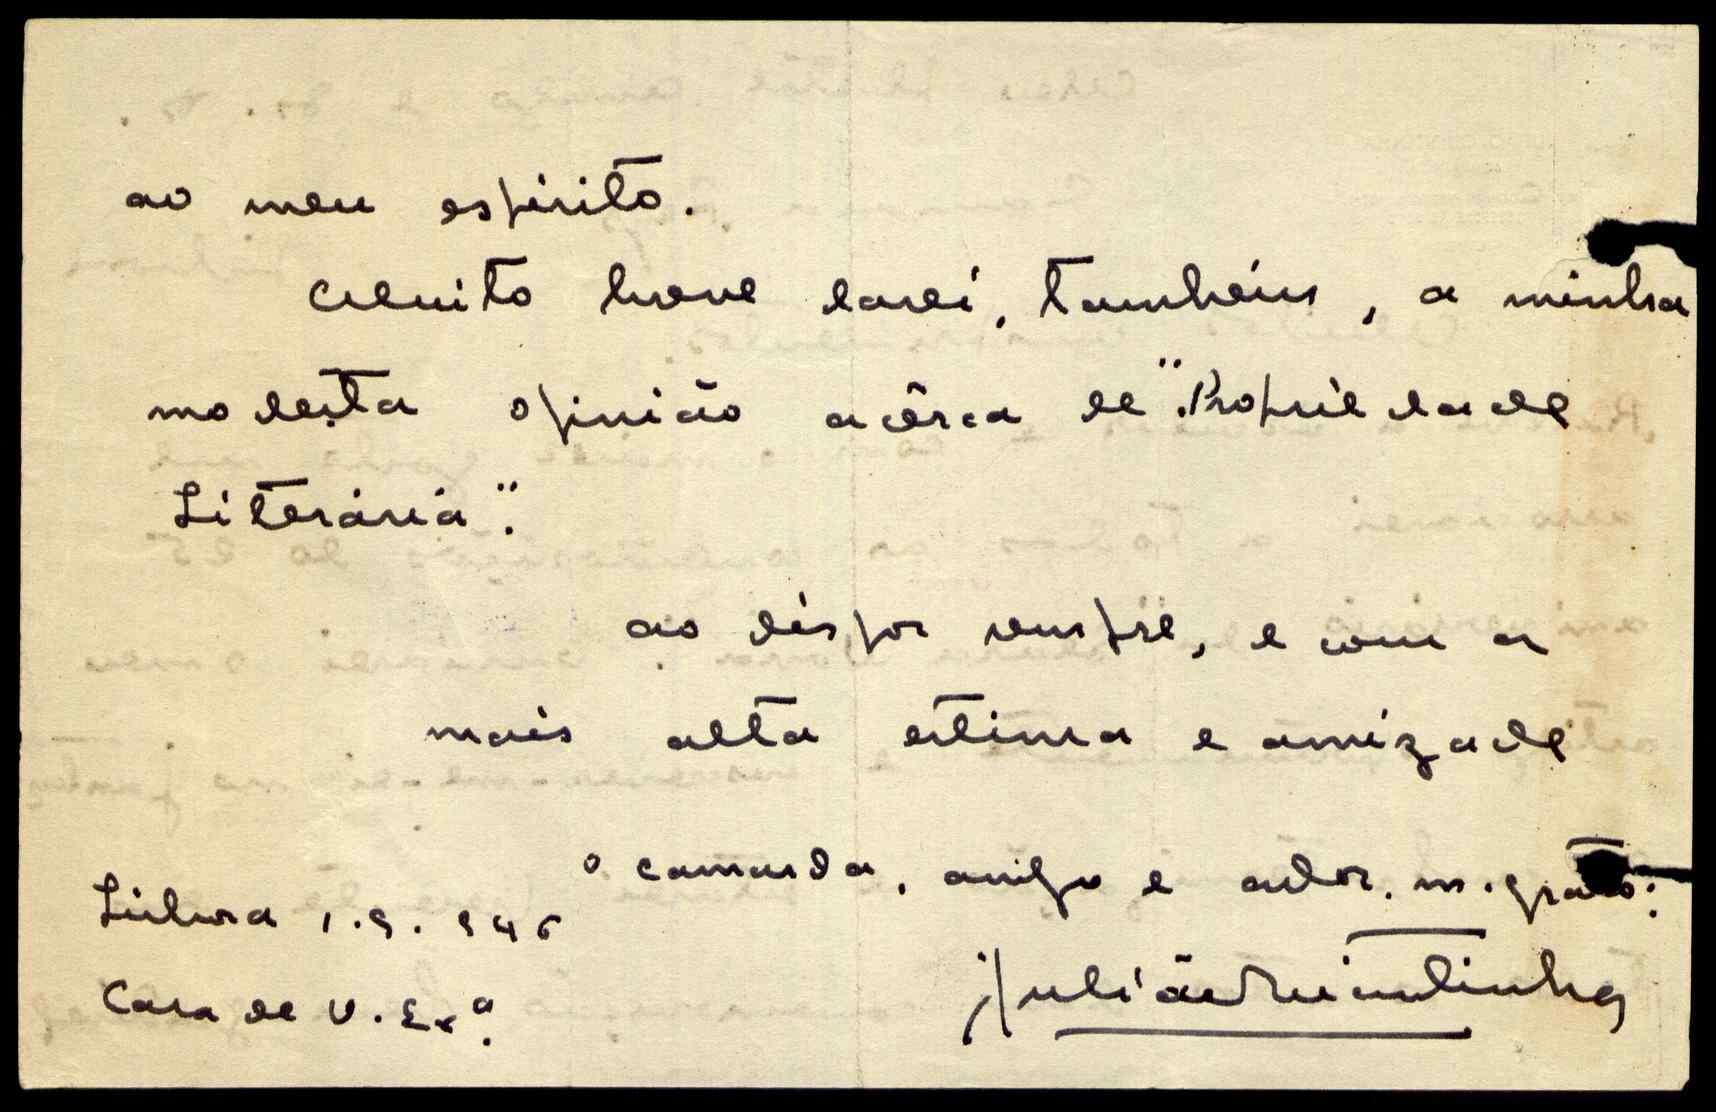 ao meu espírito.
Muito breve darei, também, a minha
modesta opinião acêrca de "Propriedade
Literária".
ao dispor sempre, e com a
mais alta estima e amizade
o camarda, amigo e ador. m. grato:
Lisboa 1.9.946
Julião Quintinha
Casa de V. Exª.